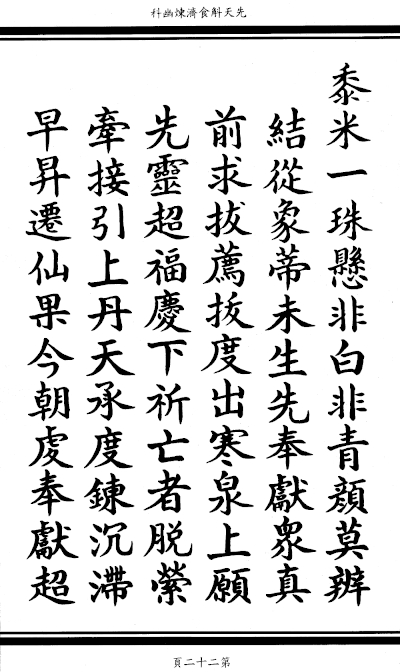 先天斛食濟煉幽科
黍米一珠懸非白非青顏莫辨
結從象蒂未生先奉獻眾真
前求拔薦拔度出寒泉上願
先靈超福慶下祈亡者脫縈
牽接引上丹天承度鍊沉滯
早昇遷仙果今朝虔奉獻超
第二十二頁